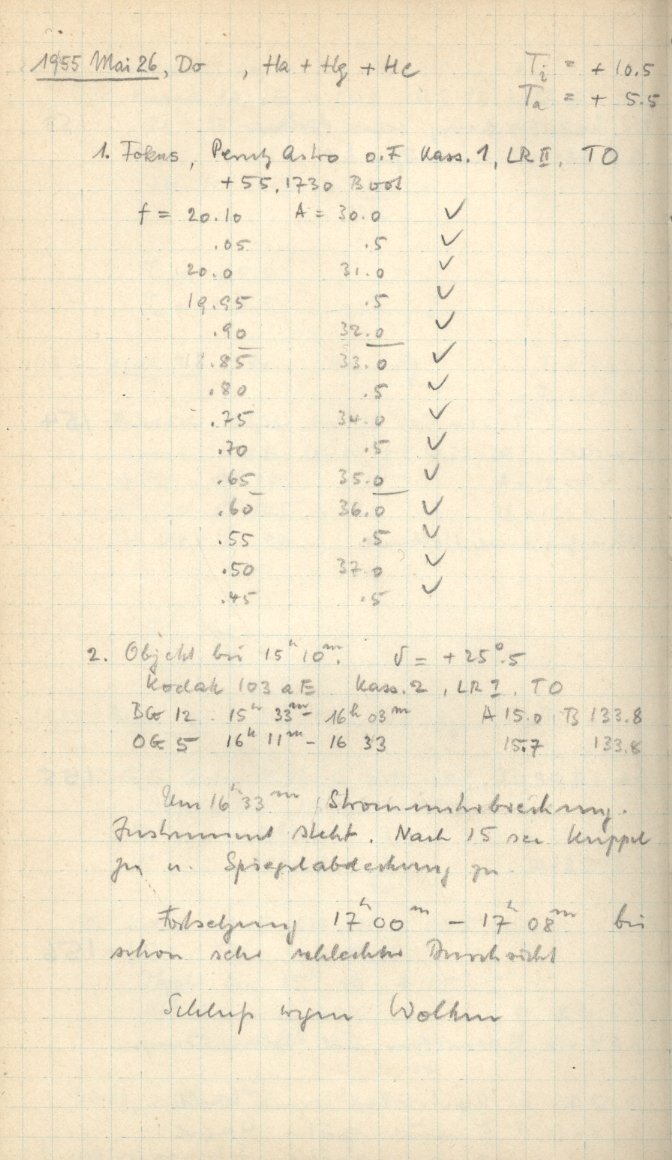 1955 Mai 26, Do , Ha + Hg + He
T_i = + 10.5
T_a = + 5.5
1. Fokus, Perutz Astro o.F Kass. 1, LR II. TO
+55, 1730 Boot
f = 20.10 A = 30.0 ✓
.05 .5 ✓
20.0 31.0 ✓
19.95 .5 ✓
.90 32.0 ✓
.85 33.0 ✓
.80 .5 ✓
.75 34.0 ✓
.70 .5 ✓
.65 35.0 ✓
.60 36.0 ✓
.55 .5 ✓
.50 37.0 ✓
.45 .5 ✓
2. Objekt bei 15h 10m. δ = +25°.5
Kodak 103 a E Kass. 2, LR I. TO
BG 12 15h 33m - 16h 03m A 15.0 B 133.8
OG 5 16h 11m - 16 33 15.7 133.8
Um 16h 33m Stromunterbrechung.
Instrument steht. Nach 15 sec Kuppel
zu u. Spiegelabdeckung zu.
Fortsetzung 17h 00m - 17h 08m bei
schon sehr schlechter Durchsicht
Schluß wegen Wolken